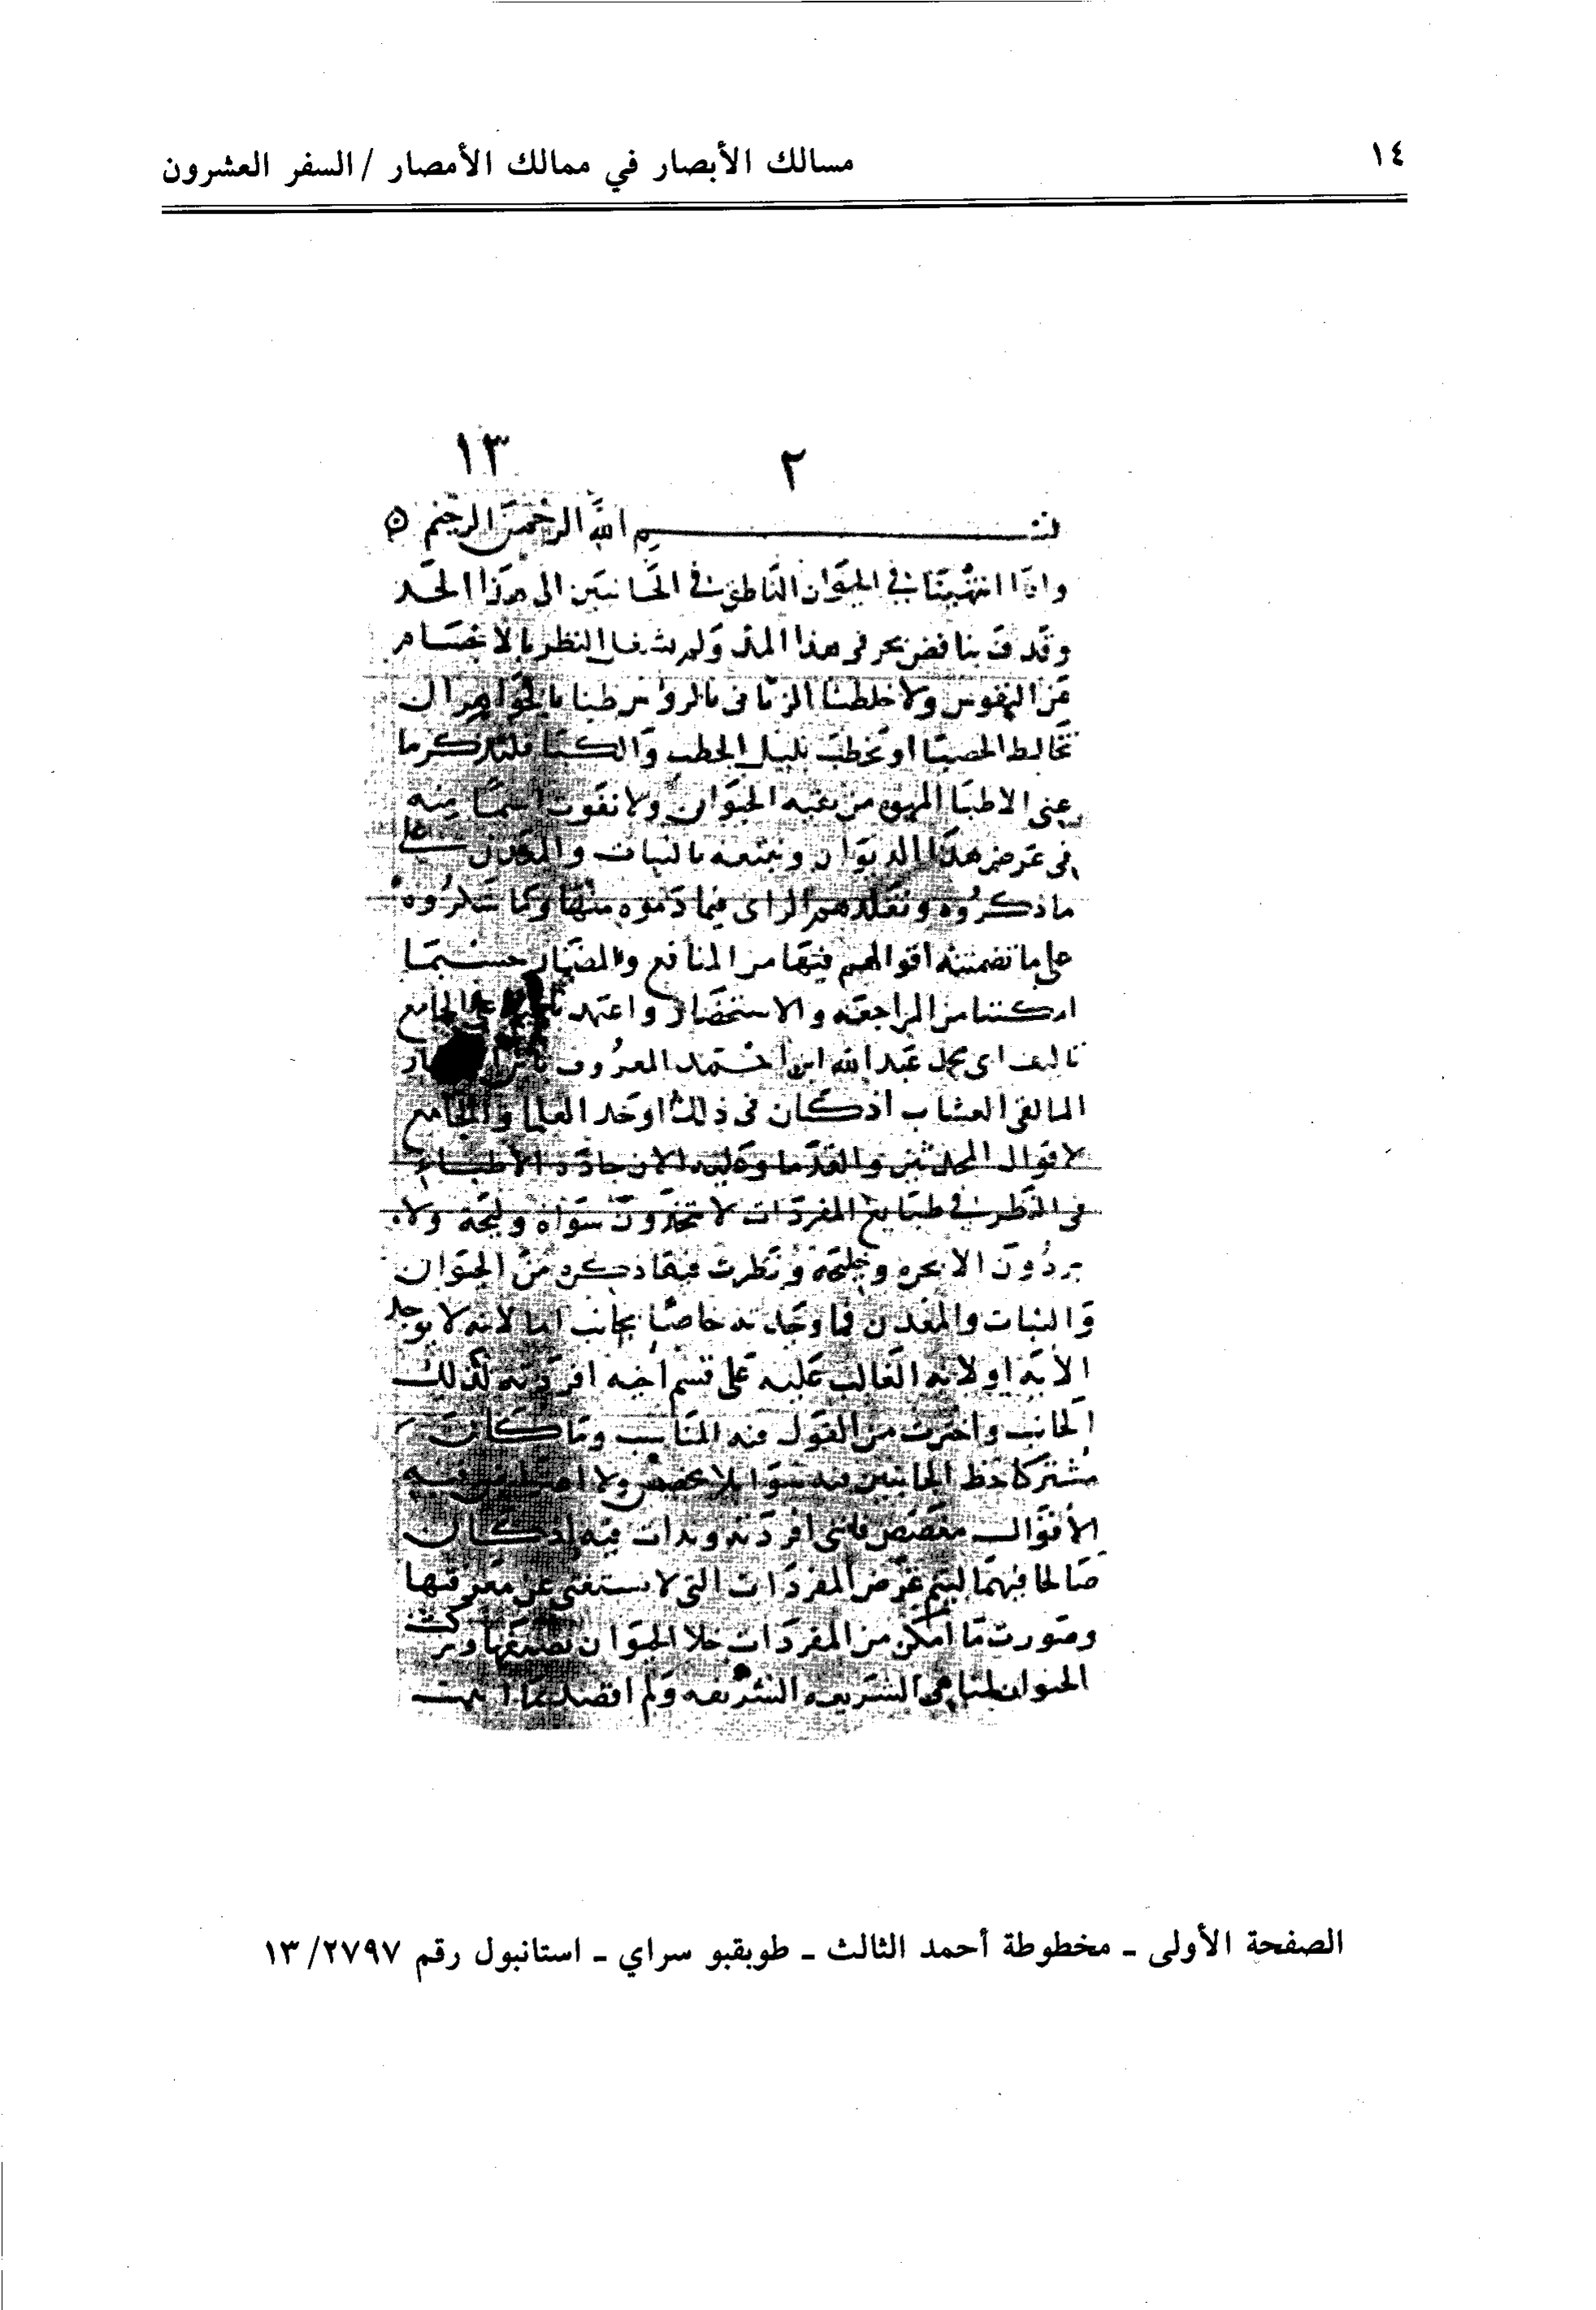 ١٤
مسالك الأبصار في ممالك الأمصار / السفر العشرون
١٣
٢
بسم الله الرحمن الرحيم
واذا انتهينا في الحيوان الناطق في الجانبين الى هذا الحد
وقد بنا في هذا المد ولم نشغل النظر بالاخصام
عن النفوس ولا خلطنا بالجواهر ان
تخالط الحصبا او يخطب بليل الحطب والكبا فلنذكر ما
عنى الاطبا المهره من بقيه الحيوان ولا نفوت منه
في عرض هذا الديوان ونتبعه بالنبات والمعدن على
ما ذكروه ونقلدهم الراى فيما ذموه منها وما شكروه
على ما تضمنته اقوالهم فيها من المنافع والمضار حسبما
امكننا من المراجعه والاستحضار واعتمد على الجامع
تاليف ابى محمد عبد الله ابن احمد المعروف
المالقى العشاب اذ كان في ذلك اوحد العلما والجامع
لاقوال المحدثين والقدما وعليه الان جادة الاطباء
في النظر في طبايع المفردات لا يتخذون سواه وليجة ولا
يردون الا بحره وخليجه ونظرت فيما ذكره من الحيوان
والنبات والمعدن فما وجدته خاصا بجانب اما لانه لا يوجد
الا به او لانه الغالب عليه على قسم اخيه افردته لذلك
الجانب واخترت من القول فيه المناسب وما كان
مشتركا حظ الجانبين فيه سوا لا يخصص ولا فيه
الاقوال فانى افردته وبدات فيه اذ كان
صالحا فيهما ليتم غرض المفردات التى لا يستغنى عن معرفتها
وصورت ما امكن من المفردات خلا الحيوان وتركت
الحيوان لمناهى الشريعه الشريفه ولم اقصد
الصفحة الأولى ـ مخطوطة أحمد الثالث ـ طوبقبو سراي ـ استانبول رقم ٢٧٩٧/ ١٣